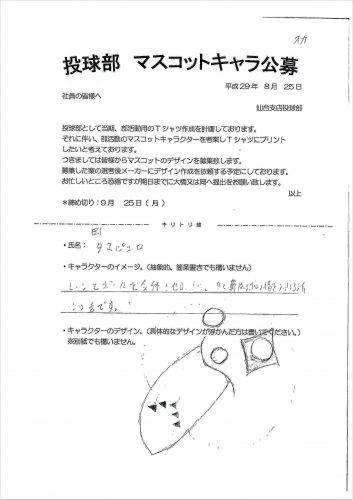 投球部 マスコットキャラ公募
平成29年 8月 25日
社員の皆様へ
仙台支店投球部
投球部として当期、部活動用のTシャツ作成を計画しております。
それに伴い、部活動のマスコットキャラクターを考案しTシャツにプリント
したいと考えております。
つきましては皆様からマスコットのデザインを募集致します。
募集した案の選考後メーカーにデザイン作成を依頼する予定にしております。
お忙しいところ恐縮ですが期日までに大橋又は岡へ提出をお願い致します。
以上
*締め切り:9月 25日(月)
キリトリ線
・氏名:
・キャラクターのイメージ。(抽象的、箇条書きでも構いません)
・キャラクターのデザイン。(具体的なデザインが浮かんだ方は書いてください。)
※別紙でも構いません。